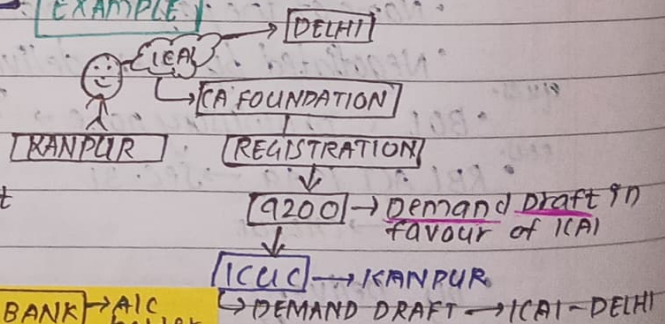 EXAMPLE
DELHI
ICAI
CA FOUNDATION
KANPUR REGISTRATION
9200 → Demand Draft in
favour of ICAI
ICICI → KANPUR
BANK → A/C DEMAND DRAFT → ICAI - DELHI